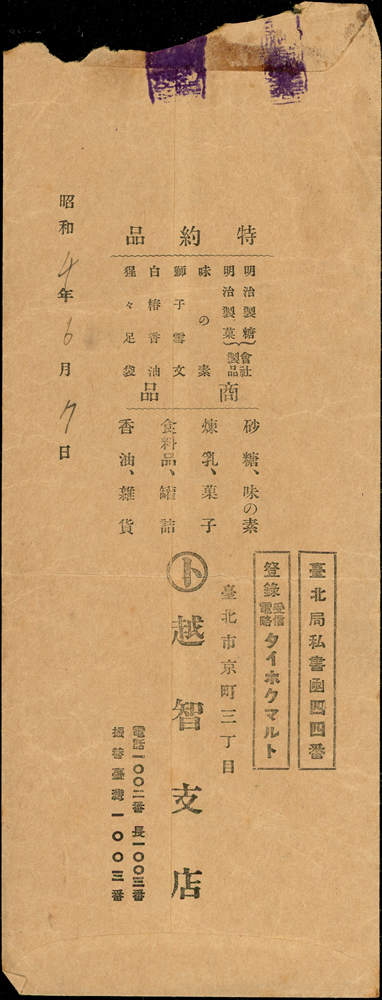 特約品
明治製糖
明治製菓
會社製品
味の素
獅子雪文
白椿香油
猩々足袋
商品
砂糖、味の素
煉乳、菓子
食料品、罐詰
香油、雜貨
臺北局私書凾四四番
登錄受信電略タイホクマルト
臺北市京町三丁目
ト越智支店
電話一〇〇二番 長一〇〇三番
振替臺灣一〇〇三番
昭和4年6月7日